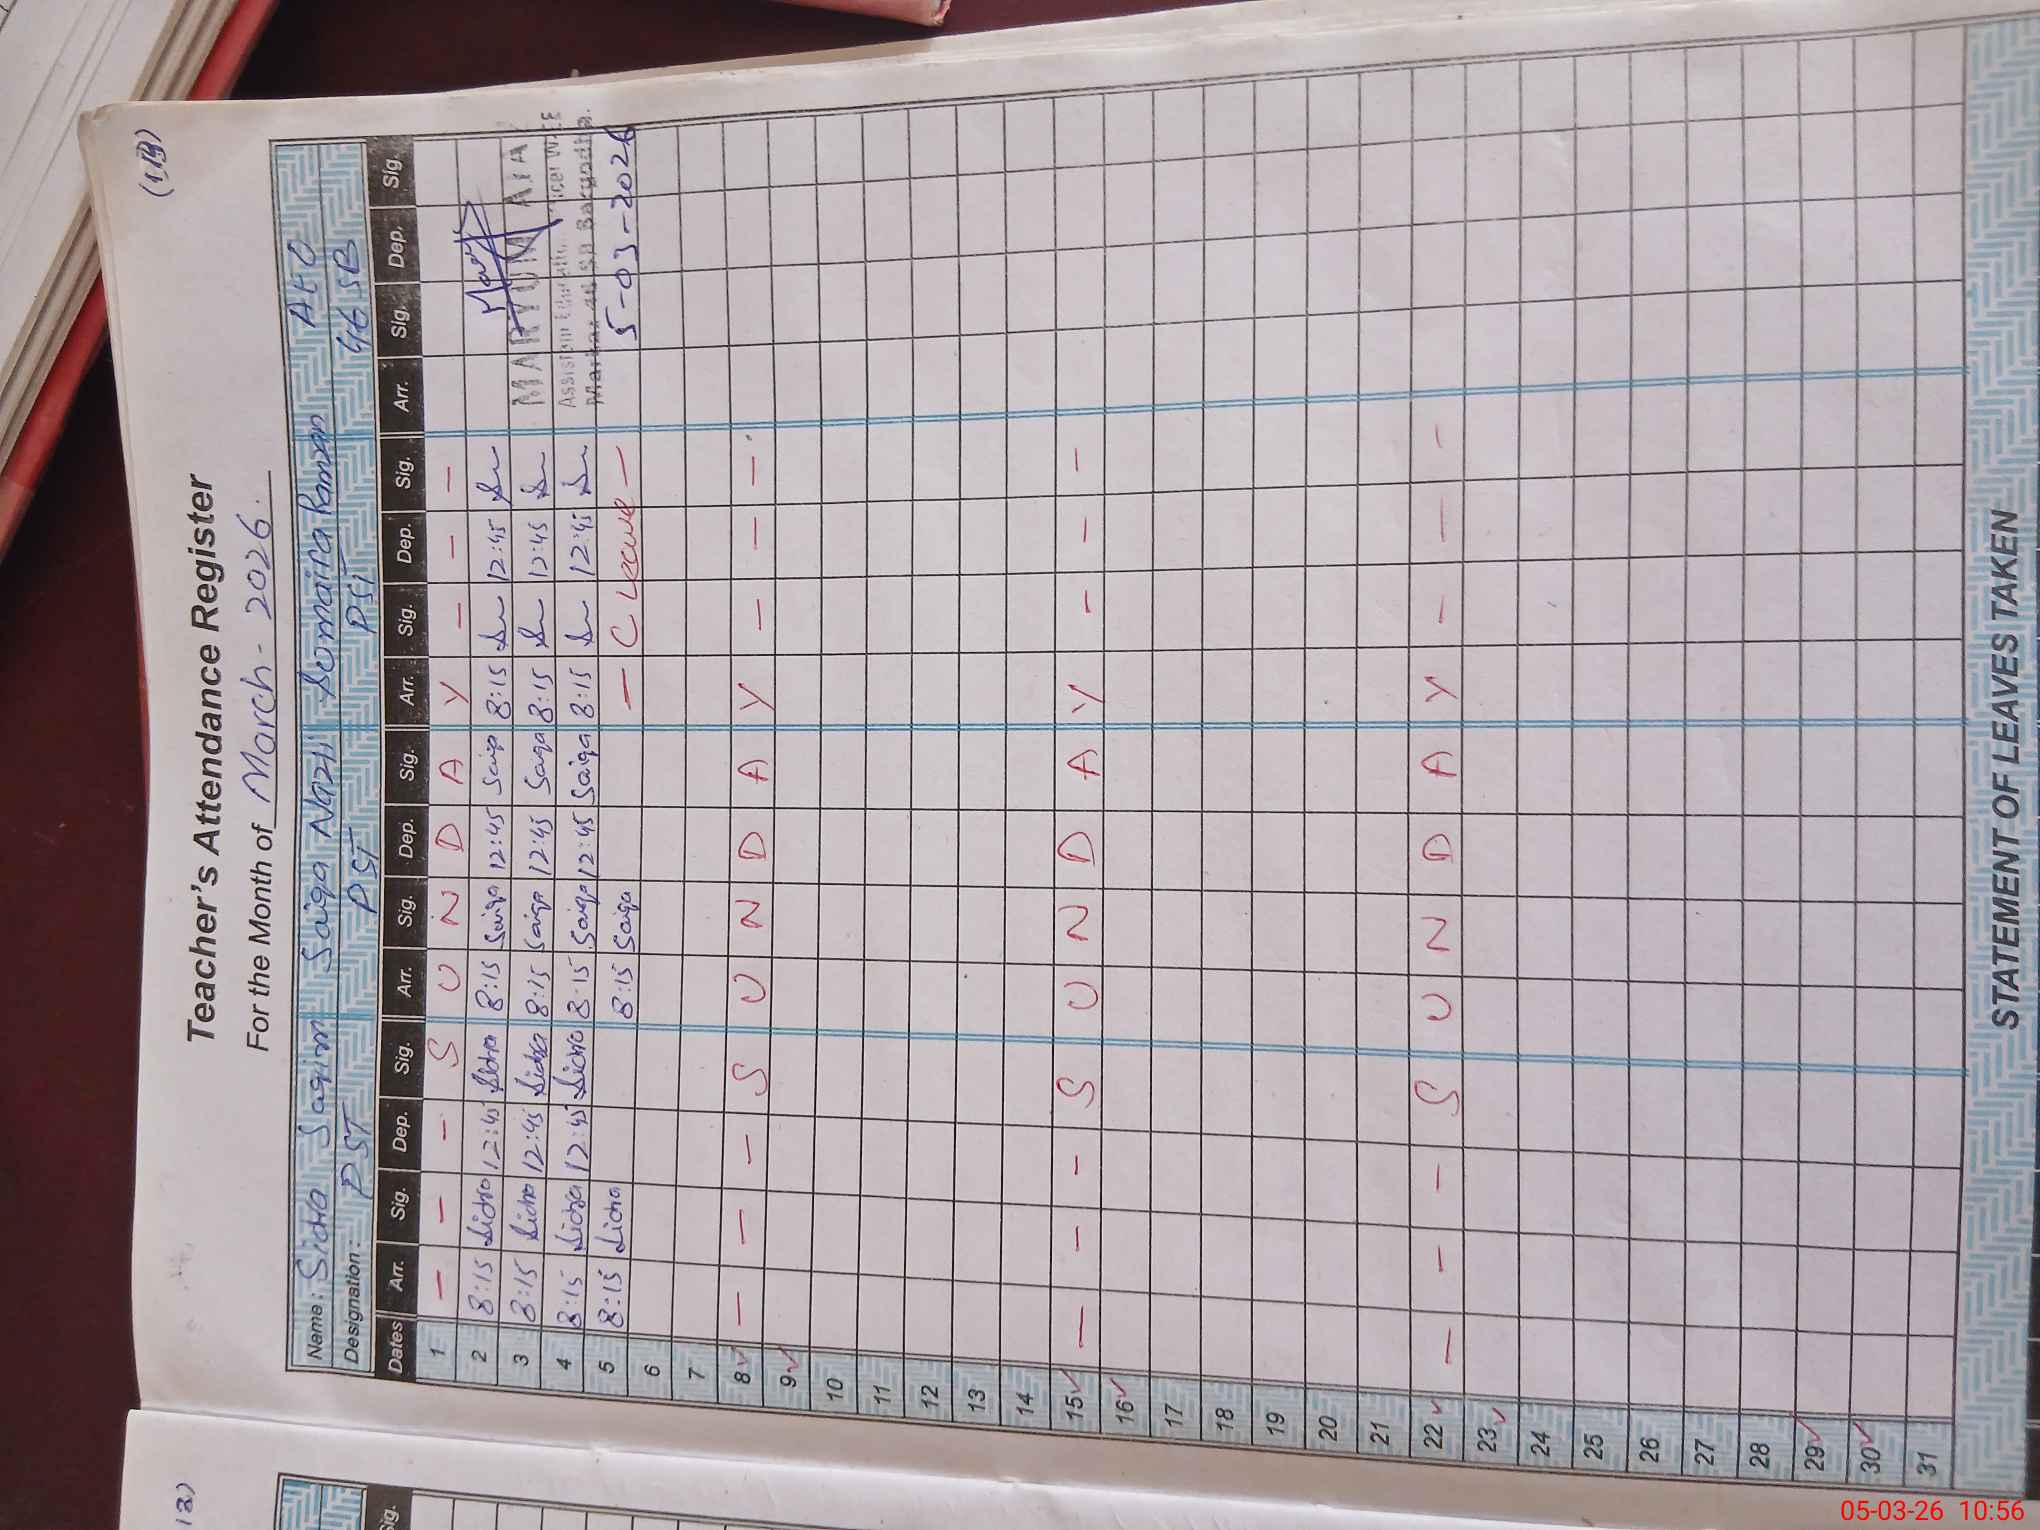 (119)
Teacher's Attendance Register
For the Month of March - 2026.
Name: Sidra Saqim Saiqa Nazli Somaira Ramzan AEO
Designation: PST PST PST 46 SB
Dates Arr. Sig. Dep. Sig. Arr. Sig. Dep. Sig. Arr. Sig. Dep. Sig. Arr. Sig. Dep. Sig.
1 - - - S U N D A Y - - -
2 8:15 Sidra 12:45 Sidra 8:15 Saiqa 12:45 Saiqa 8:15 12:45
3 8:15 Sidra 12:45 Sidra 8:15 Saiqa 12:45 Saiqa 8:15 12:45 MARYUM
4 8:15 Sidra 12:45 Sidra 8:15 Saiqa 12:45 Saiqa 8:15 12:45 Assistant
5 8:15 Sidra 8:15 Saiqa - C Leave - 5-03-2026
6
7
8✓ - - - S U N D A Y - - -
9✓
10
11
12
13
14
15✓ - - - S U N D A Y - - -
16✓
17
18
19
20
21
22✓ - - - S U N D A Y - - -
23✓
24
25
26
27
28
29✓
30✓
31
STATEMENT OF LEAVES TAKEN
Sig.
05-03-26 10:56